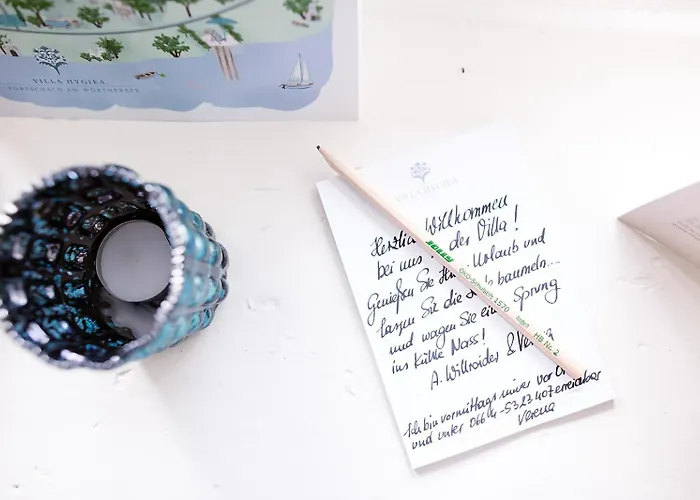 VILLA HYGIEA
PÖRTSCHACH AM WÖRTHERSEE
VILLA HYGIEA
Herzlich Willkommen
bei uns in der Villa!
Genießen Sie Ihren Urlaub und
lassen Sie die Seele baumeln...
und wagen Sie einen Sprung
ins kühle Nass!
A. Willroider & Verena
Ich bin vormittags immer vor Ort
und unter 0664-5323407 erreichbar
Verena
JOLLY
1570
HB Nr. 2